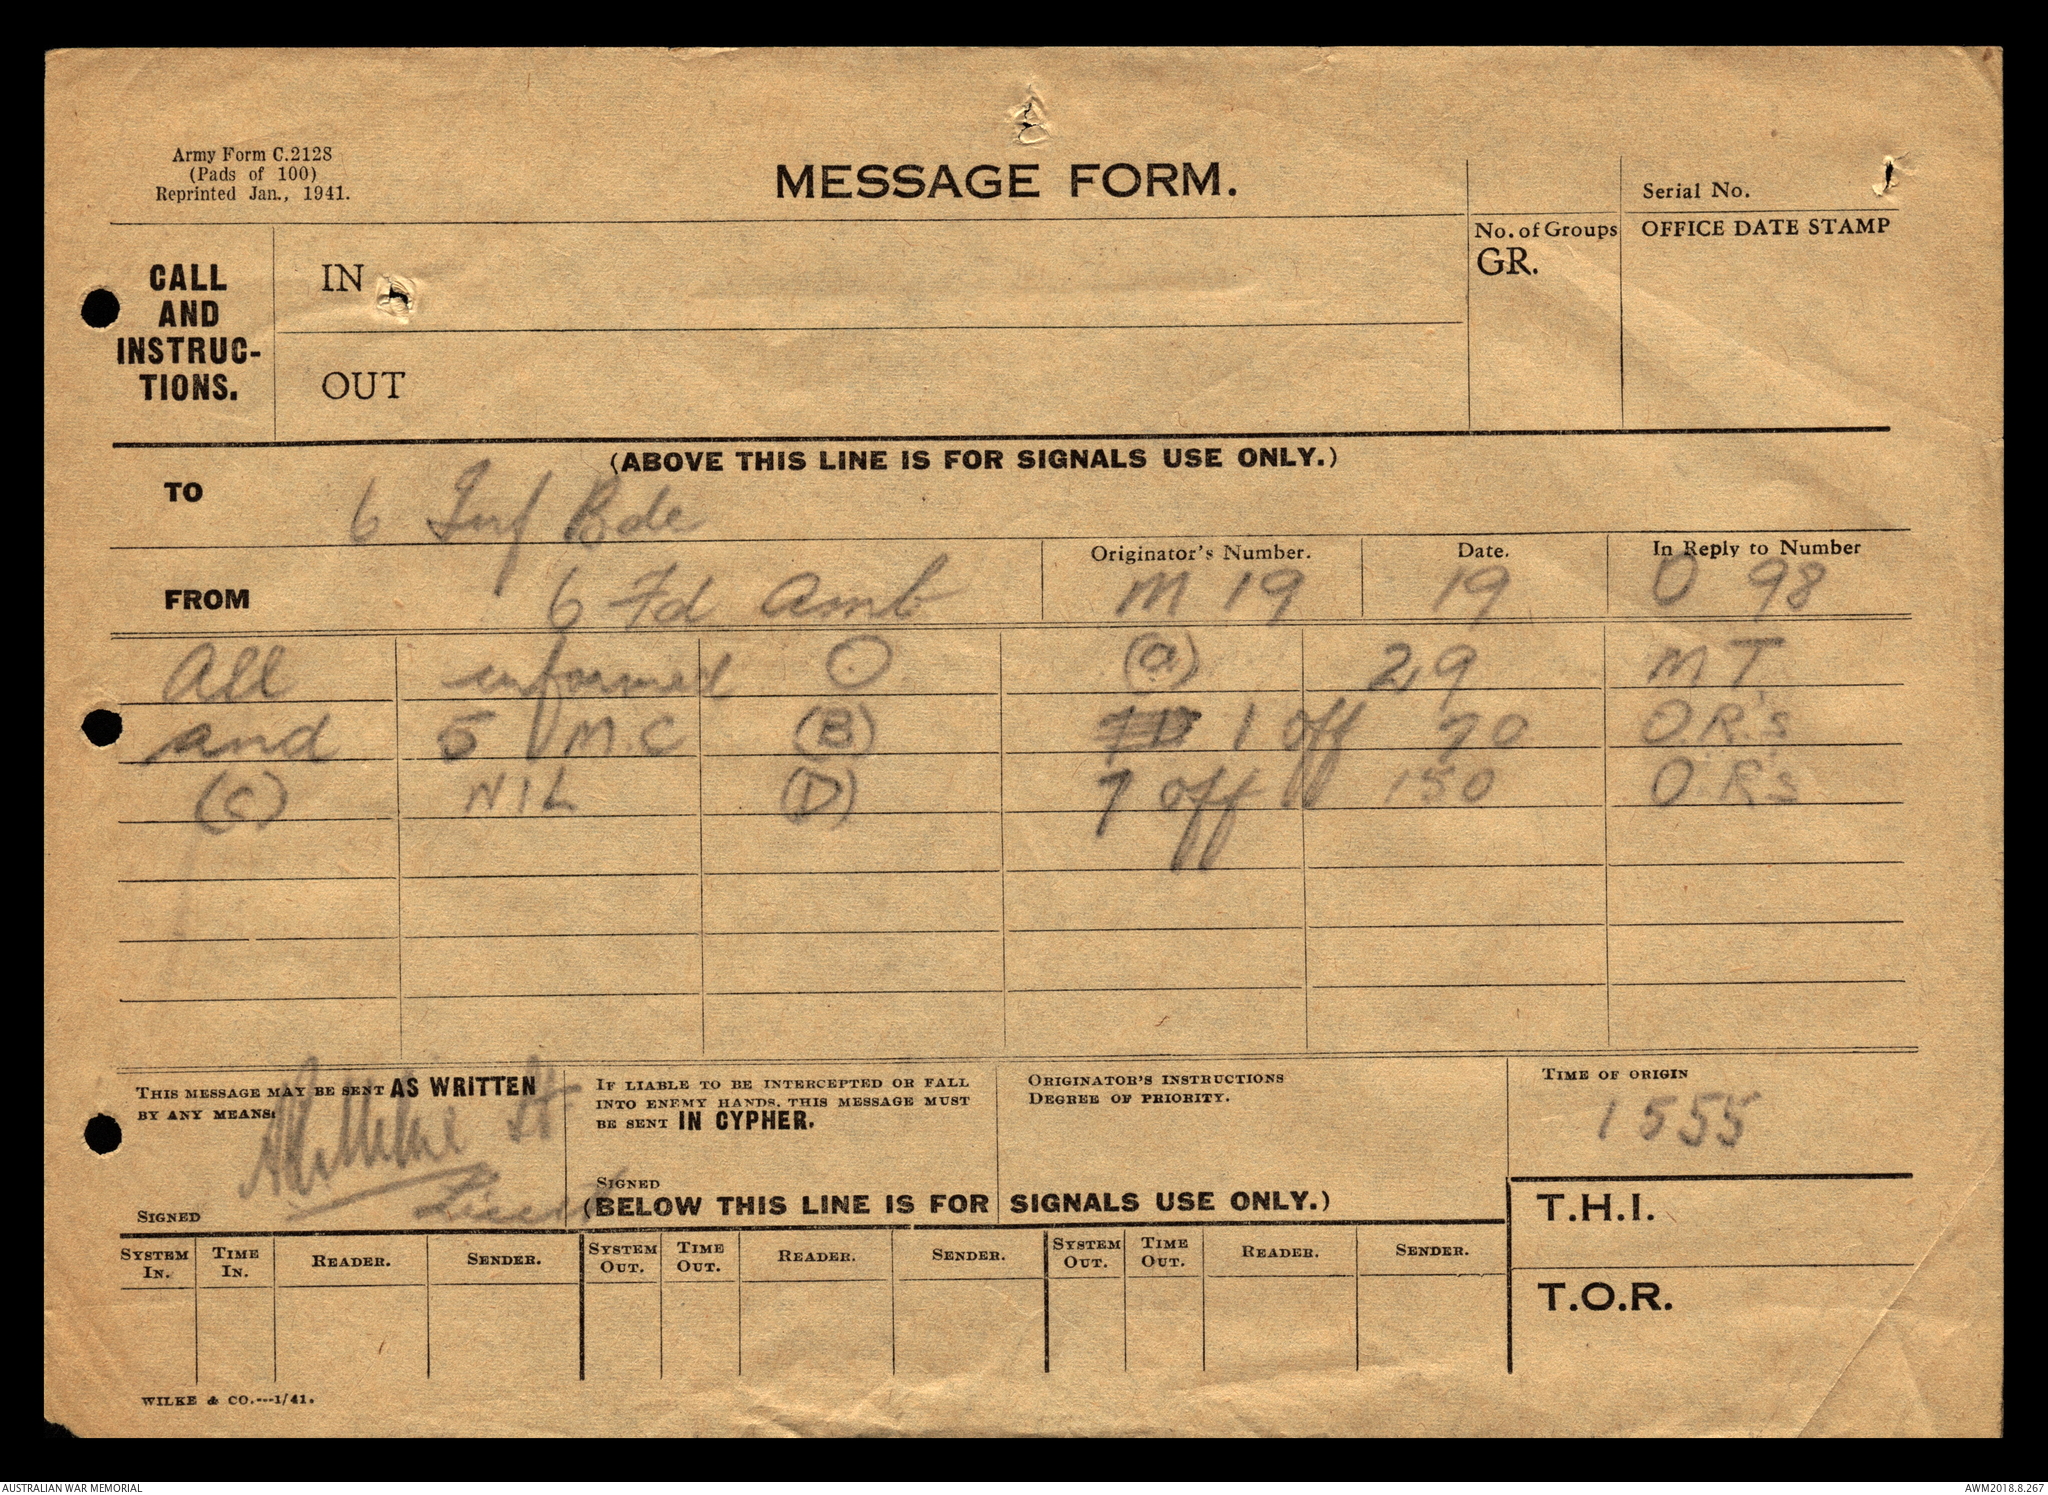 Army Form C.2128
(Pads of 100)
Reprinted Jan., 1941.
MESSAGE FORM.
Serial No.
No. of Groups
GR.
OFFICE DATE STAMP
CALL
AND
INSTRUC-
TIONS.
IN
OUT
(ABOVE THIS LINE IS FOR SIGNALS USE ONLY.)
TO 6 Inf Bde
Originator's Number. Date. In Reply to Number
FROM 6 Fd Amb M 19 19 O 98
All informed O (a) 29 MT
and 5 M.C (B) 1 off 70 O.R.'s
(C) NIL (D) 7 off 150 O.R's
THIS MESSAGE MAY BE SENT AS WRITTEN
BY ANY MEANS:
SIGNED
IF LIABLE TO BE INTERCEPTED OR FALL
INTO ENEMY HANDS, THIS MESSAGE MUST
BE SENT IN CYPHER.
SIGNED
ORIGINATOR'S INSTRUCTIONS
DEGREE OF PRIORITY.
TIME OF ORIGIN
1555
(BELOW THIS LINE IS FOR SIGNALS USE ONLY.)
T.H.I.
SYSTEM IN. TIME IN. READER. SENDER. SYSTEM OUT. TIME OUT. READER. SENDER. SYSTEM OUT. TIME OUT. READER. SENDER.
T.O.R.
WILKE & CO.---1/41.
AUSTRALIAN WAR MEMORIAL
AWM2018.8.267